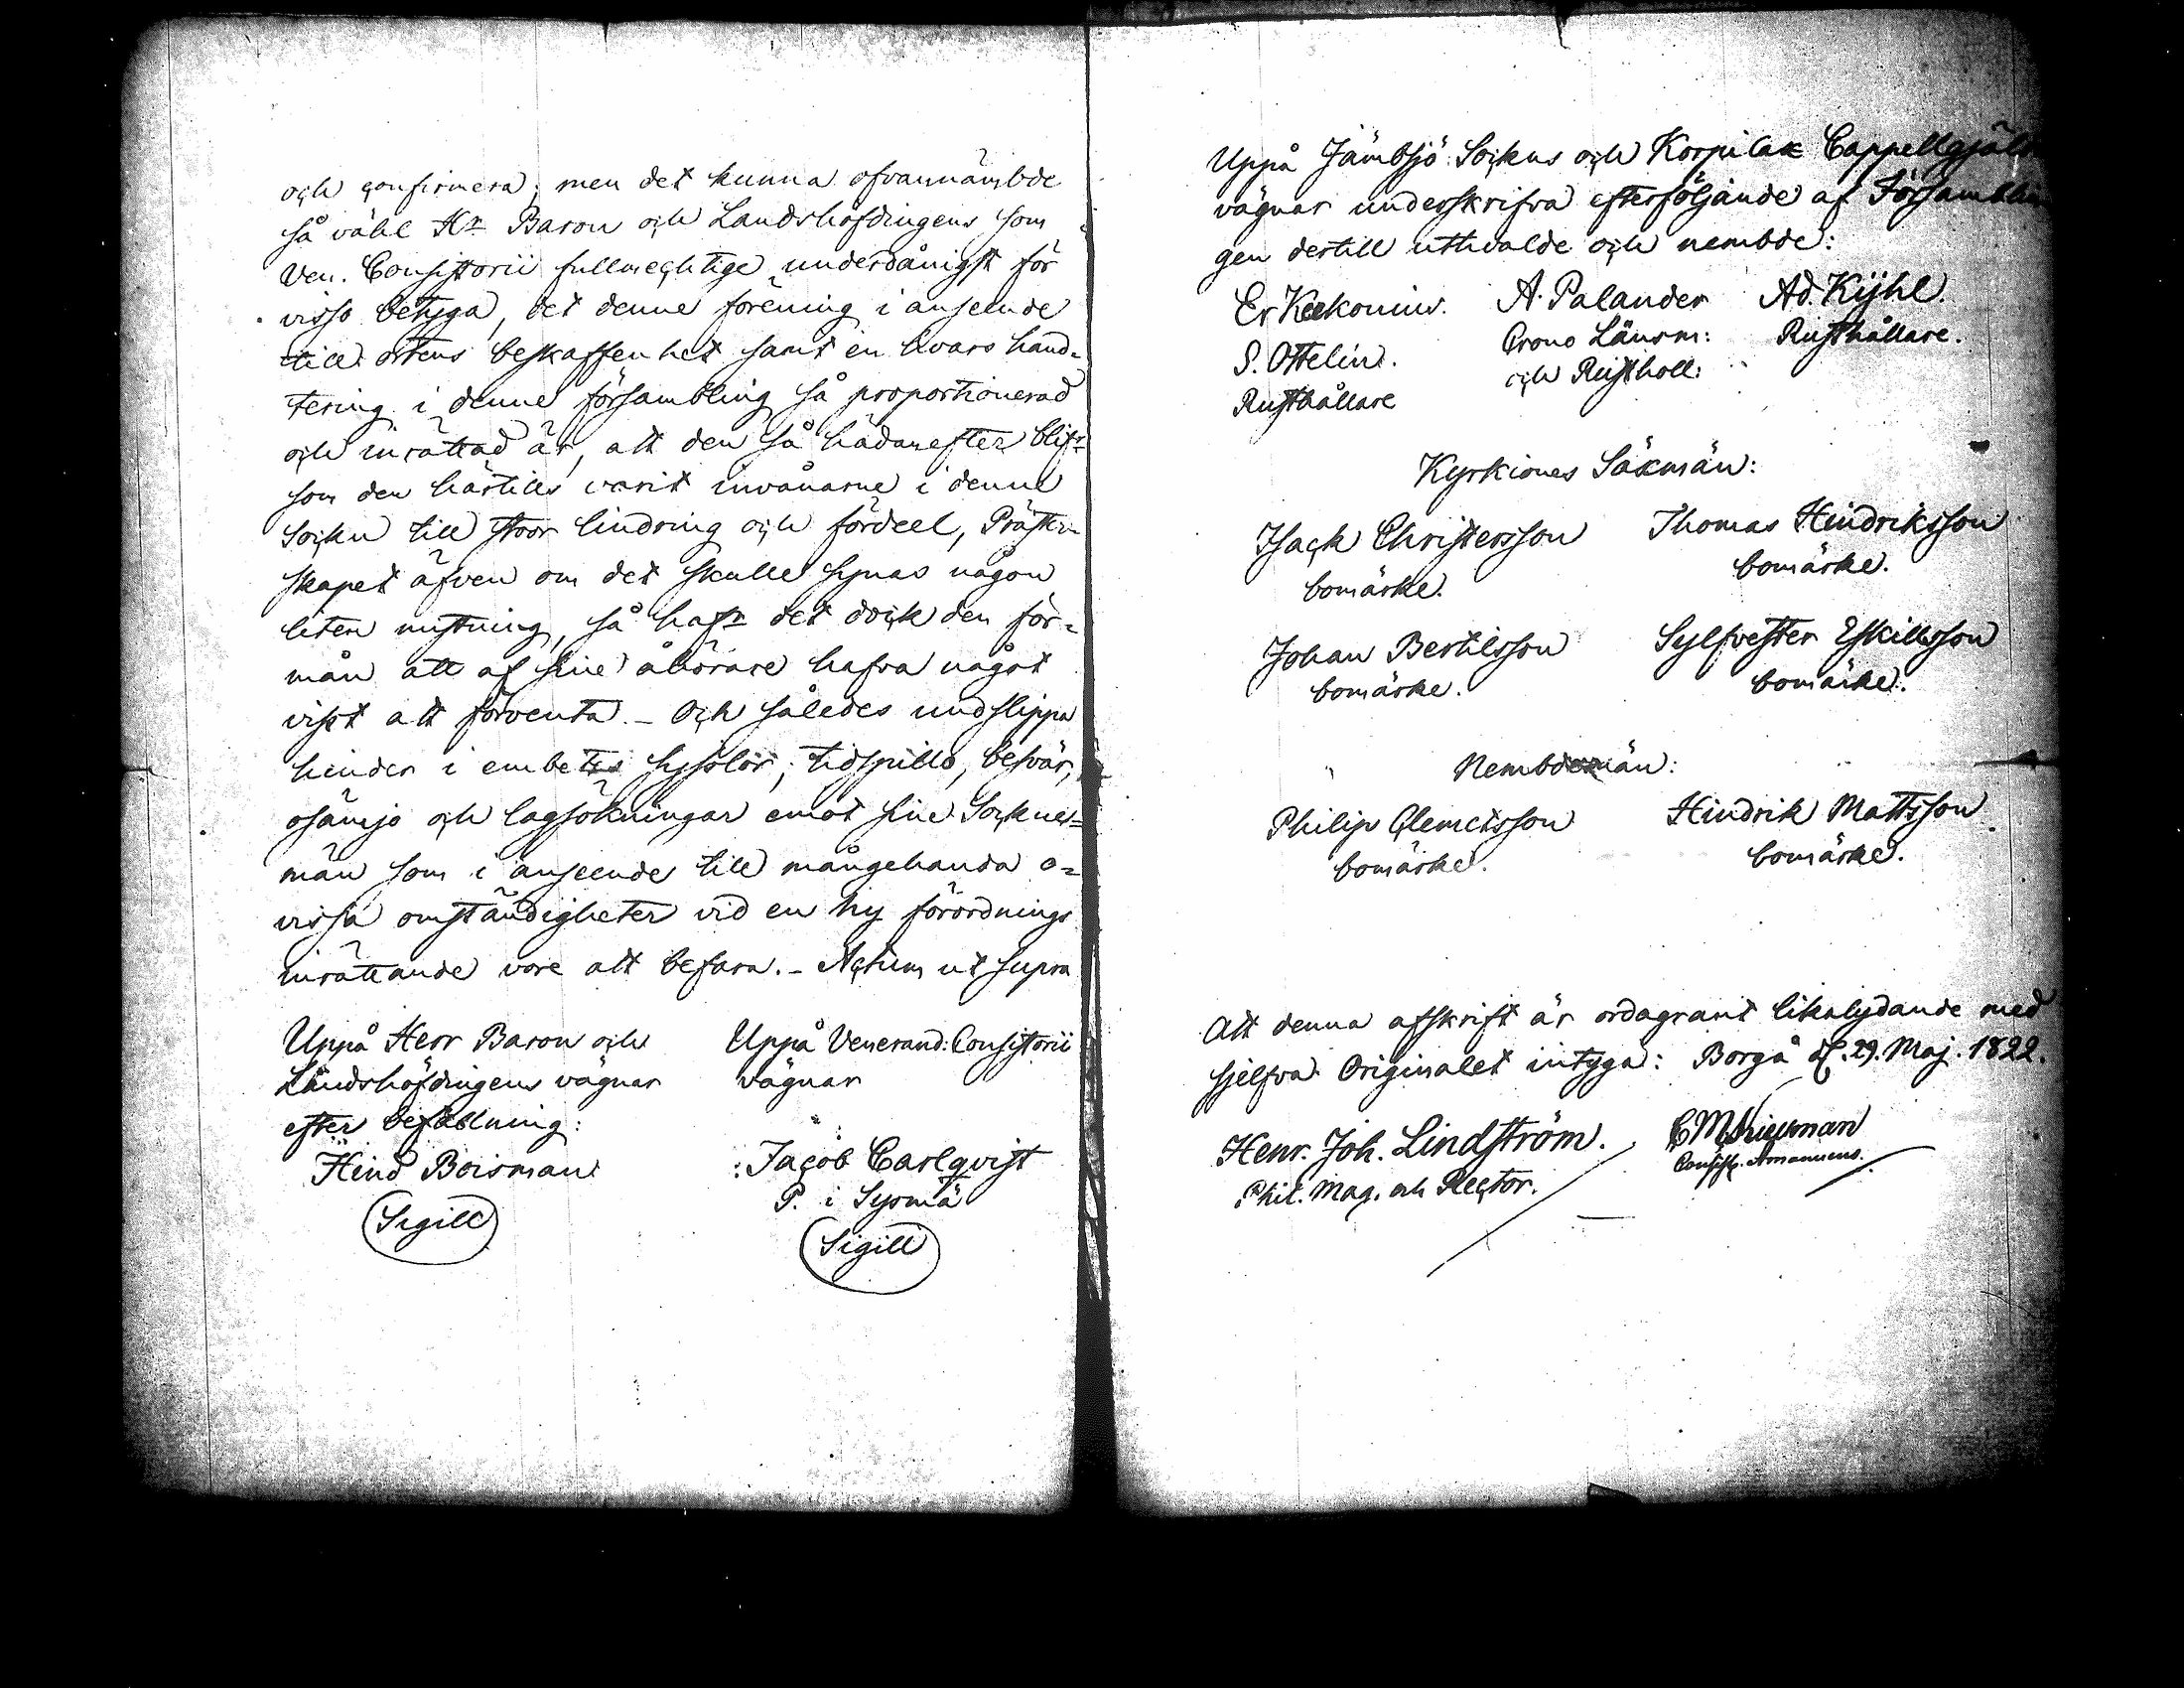 och confirmera; men det kunna ofvannämbde
så vähl Hr Baron och Landshöfdingens som
Ven. Consistorii fullmechtige underdånigst för
visso betyga, det denne förening i anseende
till ortens beskaffenhet samt en hvars hand-
tering i denne försambling så proportionerad
och inrättad är, att den så hädanefter blifr
som den härtills varit invånarne i denne
Sockn till stoor lindring och fördeel, Präster-
skapet äfven om det skulle synas någon
liten mistning, så hafr det dock den för-
mån att af sine åhörare hafva något
visst att förvента. - Och således undslippa
hinder i embetes sysslor, tidspillo, besvär,
osämjo och lagsökningar emot sine Sockne-
män som i anseende till mångehanda o-
vissa omständigheter vid en ny förordnings
inrättande vore att befara. - Actum ut supra
Uppå Herr Baron och
Landshöfdingens vägnar
efter befallning:
Hind Boisman
Sigill
Uppå Venerand: Consistorii
vägnar
Jacob Carlqvist
P. i Sysmä
Sigill
Uppå Jämbsjö Sockns och Korpilax Cappellgjälds
vägnar underskrifva efterföljande af Församblin
gen dertill uthvalde och nembde:
Er Keckonius. A. Palander Ad. Kijhl.
S. Ottelin. Crono Länsm: Rusthållare.
Rusthållare och Rusthåll:
Kyrkiones Säxmän:
Isack Christersson Thomas Hindriksson
bomärke. bomärke.
Johan Bertilsson Sylfvester Eskillsson
bomärke. bomärke.
Nembdemän:
Philip Clemetsson Hindrik Mattsson
bomärke. bomärke.
Att denna afskrift är ordagrant likalydande med
sjelfva Originalet intyga: Borgå d. 29. Maj. 1822.
Henr. Joh. Lindström.
Phil. Mag. och Rector. Consist. Amanuens.